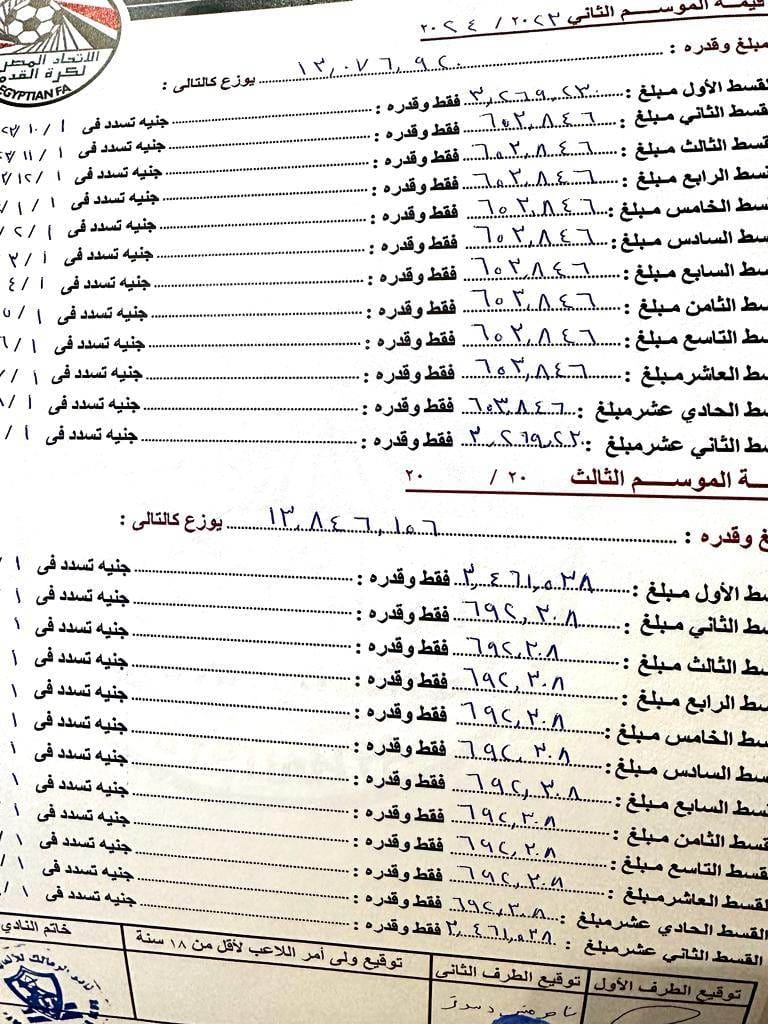 الاتحاد المصر
لكرة القدم
EGYPTIAN FA
قيمة الموسم الثاني ٢٠٢٣ / ٢٠٢٤
مبلغ وقدره : ١٣,٠٧٦,٩٢٠ يوزع كالتالى :
قسط الأول مبلغ : ٣,٢٦٩,٢٣٠ فقط وقدره : جنيه تسدد فى ١ / ١٠ /
قسط الثاني مبلغ : ٦٥٣,٨٤٦ فقط وقدره : جنيه تسدد فى ١ / ١١ /
قسط الثالث مبلغ : ٦٥٣,٨٤٦ فقط وقدره : جنيه تسدد فى ١ / ١٢ /
سط الرابع مبلغ : ٦٥٣,٨٤٦ فقط وقدره : جنيه تسدد فى ١ / ١ /
سط الخامس مبلغ : ٦٥٣,٨٤٦ فقط وقدره : جنيه تسدد فى ١ / ٢ /
سط السادس مبلغ : ٦٥٣,٨٤٦ فقط وقدره : جنيه تسدد فى ١ / ٣
سط السابع مبلغ : ٦٥٣,٨٤٦ فقط وقدره : جنيه تسدد فى ١ / ٤
سط الثامن مبلغ : ٦٥٣,٨٤٦ فقط وقدره : جنيه تسدد فى ١ / ٥
سط التاسع مبلغ : ٦٥٣,٨٤٦ فقط وقدره : جنيه تسدد فى ١ / ٦
سط العاشر مبلغ : ٦٥٣,٨٤٦ فقط وقدره : جنيه تسدد فى ١ / ٧
سط الحادي عشر مبلغ : ٦٥٣,٨٤٦ فقط وقدره : جنيه تسدد فى ١ / ٨
سط الثاني عشر مبلغ : ٣,٢٦٩,٢٣٠ فقط وقدره : جنيه تسدد فى ١ /
ـة الموسم الثالث ٢٠ / ٢٠
غ وقدره : ١٣,٨٤٦,١٥٦ يوزع كالتالى :
سط الأول مبلغ : ٣,٤٦١,٥٣٨ فقط وقدره : جنيه تسدد فى ١ /
سط الثاني مبلغ : ٦٩٢,٣٠٨ فقط وقدره : جنيه تسدد فى ١
سط الثالث مبلغ : ٦٩٢,٣٠٨ فقط وقدره : جنيه تسدد فى ١
سط الرابع مبلغ : ٦٩٢,٣٠٨ فقط وقدره : جنيه تسدد فى ١
سط الخامس مبلغ : ٦٩٢,٣٠٨ فقط وقدره : جنيه تسدد فى ١
سط السادس مبلغ : ٦٩٢,٣٠٨ فقط وقدره : جنيه تسدد فى ١
قسط السابع مبلغ : ٦٩٢,٣٠٨ فقط وقدره : جنيه تسدد فى ١
قسط الثامن مبلغ : ٦٩٢,٣٠٨ فقط وقدره : جنيه تسدد فى ١
قسط التاسع مبلغ : ٦٩٢,٣٠٨ فقط وقدره : جنيه تسدد فى ١
لقسط العاشر مبلغ : ٦٩٢,٣٠٨ فقط وقدره : جنيه تسدد فى ١ /
القسط الحادي عشر مبلغ : ٦٩٢,٣٠٨ فقط وقدره : جنيه تسدد فى ١ /
القسط الثاني عشر مبلغ : ٣,٤٦١,٥٣٨ فقط وقدره : جنيه تسدد فى ١ /
توقيع الطرف الأول توقيع الطرف الثاني توقيع ولى أمر اللاعب لأقل من ١٨ سنة خاتم النادي